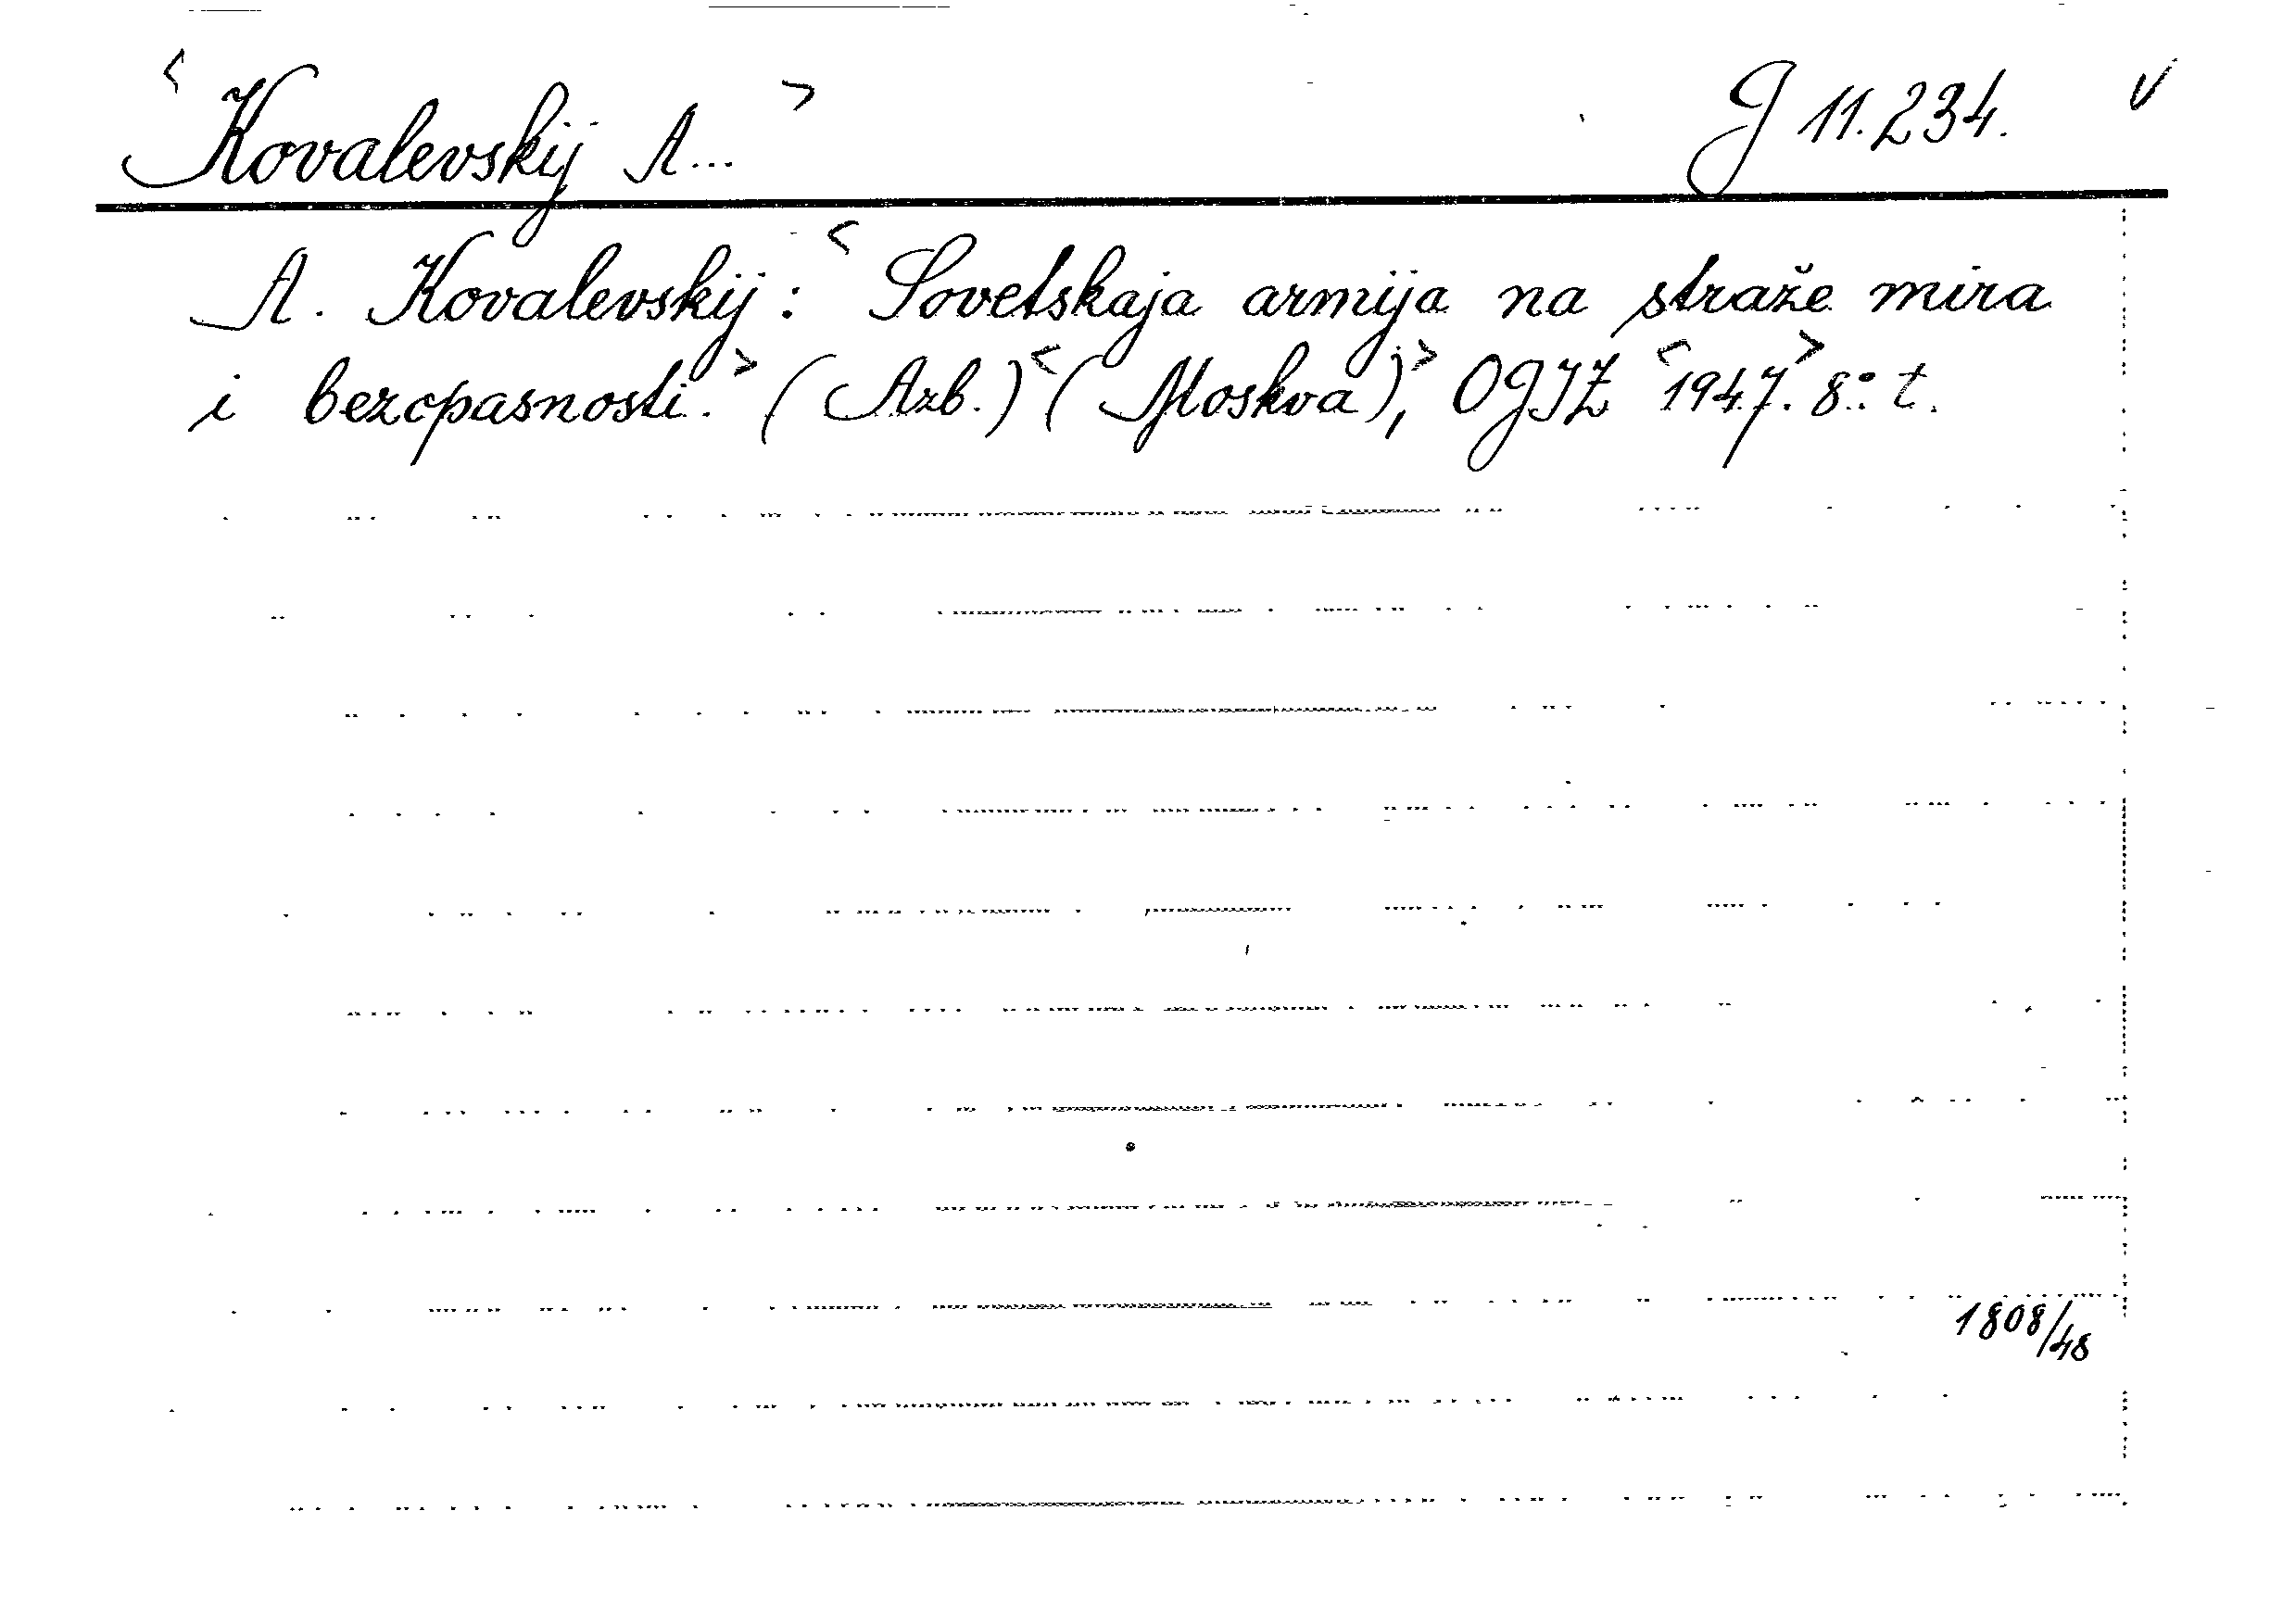 <Kovalevskij A...> J 11.234. v
A. Kovalevskij: <Sovetskaja armija na straže mira
i bezopasnosti.> (Azb.) <(Moskva),> OGIZ <1947.> 8:° t.
1808/48